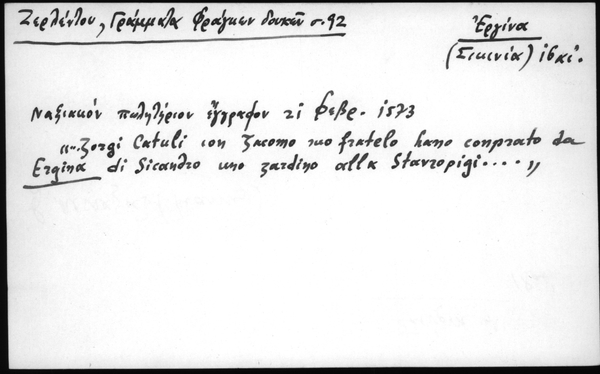 Ζερλέντου, Γράμματα Φράγκων δουκῶν σ. 92
Ἐργίνα
(Σικινία) ις αἰ.
Ναξιακόν πωλητήριον ἔγγραφον 21 φεβρ. 1573
«...Zorgi Catuli con Jacomo suo fratelo hano conprato da
Ergina di Sicandro uno zardino alla Stavropigi....»